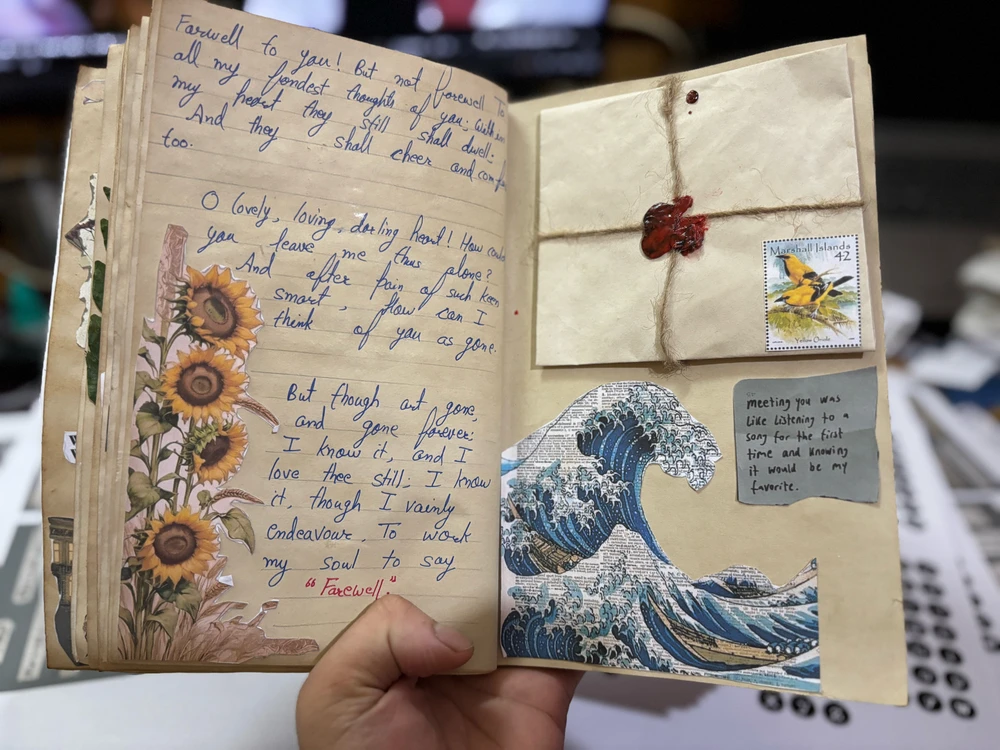 Farwell to you! But not forewell To
all my fondest thoughts of you; Within
my heart they still shall dwell;
And they shall cheer and comfort
too.
O lovely, loving, darling heart! How could
you leave me thus alone?
And after pain of such keen
smart, How can I
think of you as gone.
But though art gone,
and gone forever;
I know it, and I
love thee still; I know
it, though I vainly
endeavour, To work
my soul to say
"Farewell."
Marshall Islands
42
Yellow Oriole
meeting you was
like listening to a
song for the first
time and knowing
it would be my
favorite.